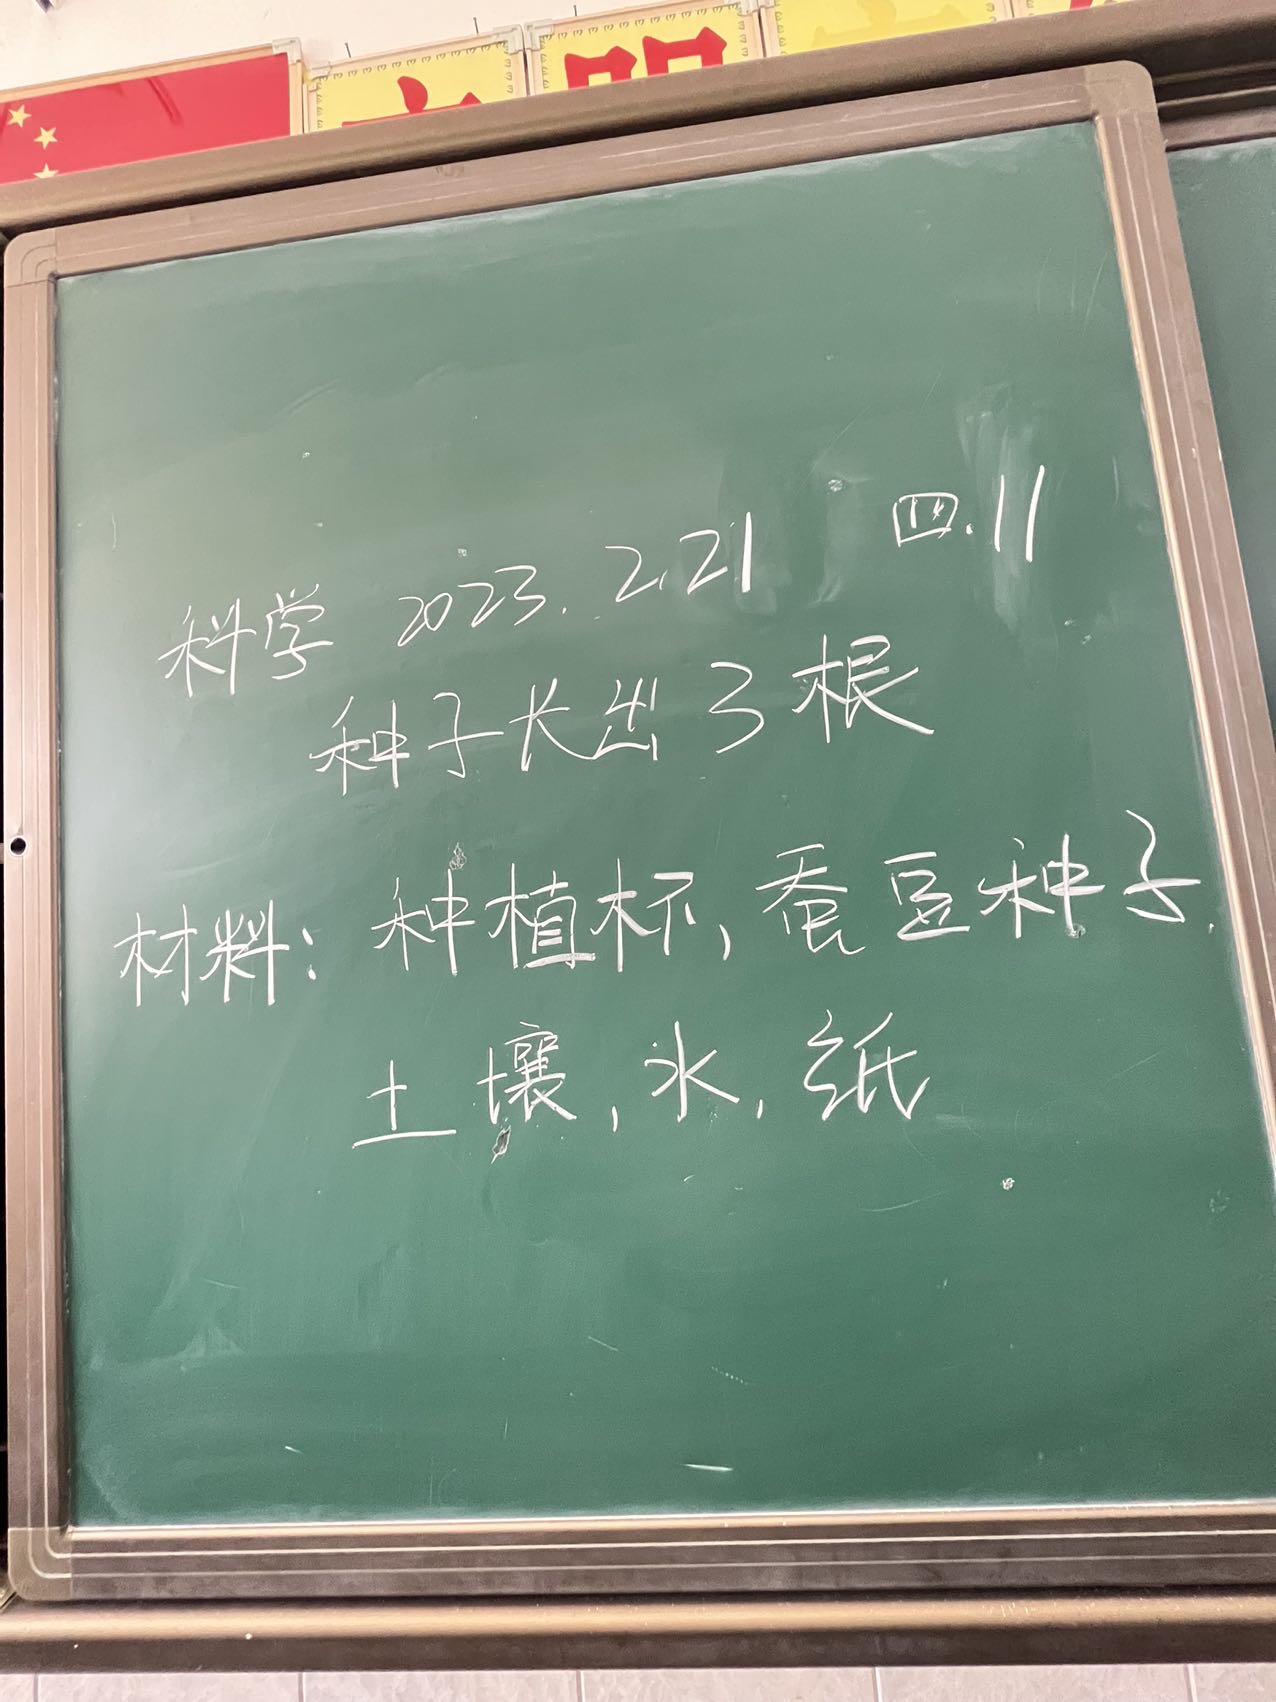 科学 2023.2.21 四.11
种子长出了根
材料：种植杯，蚕豆种子.
土壤，水，纸